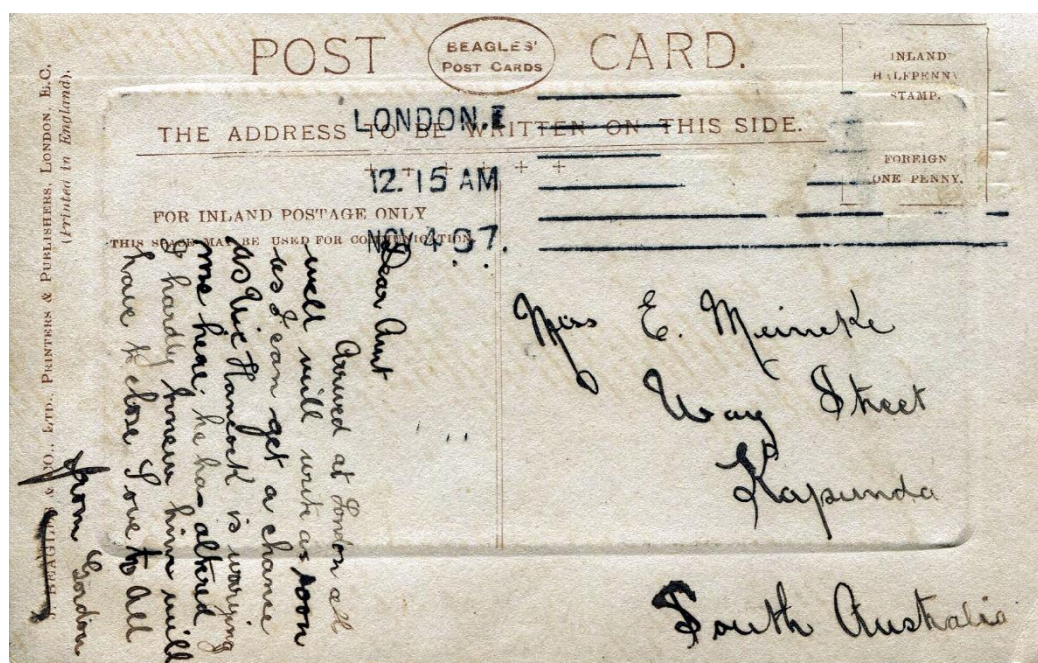 POST CARD.
BEAGLES'
POST CARDS
INLAND
HALFPENNY
STAMP.
FOREIGN
ONE PENNY.
THE ADDRESS TO BE WRITTEN ON THIS SIDE.
LONDON.E
12. 15 AM
NOV 4 07.
FOR INLAND POSTAGE ONLY
THIS SPACE MAY BE USED FOR COMMUNICATION
J. BEAGLES & CO., LTD., PRINTERS & PUBLISHERS, LONDON, E.C.
(Printed in England).
Dear Aunt
Arrived at London all
well will write as soon
as I can get a chance
as Vic Hancock is
me here, he has altered
I hardly knew him will
have to close Love to all
from Gordon
Miss E. Meincke
Way Street
Kapunda
South Australia